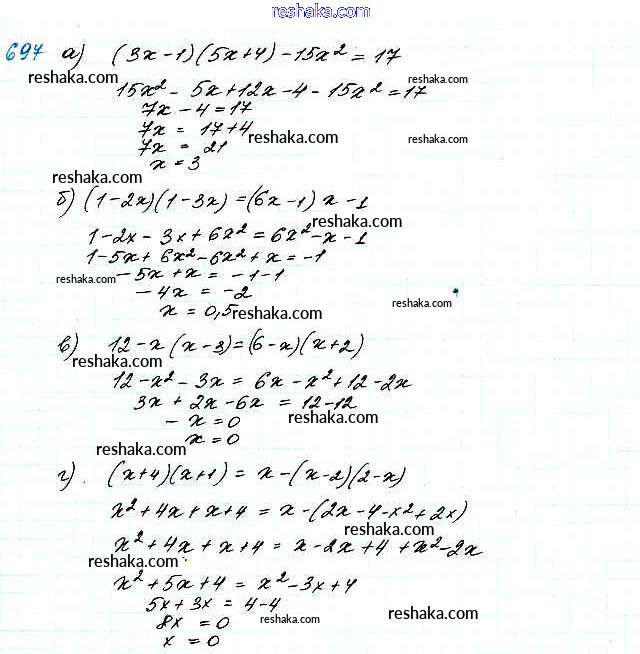 reshaka.com
697 а) (3x-1)(5x+4)-15x² = 17
reshaka.com
reshaka.com
15x² - 5x+12x-4-15x² = 17
7x - 4 = 17
7x = 17+4
reshaka.com
reshaka.com
7x = 21
x = 3
reshaka.com
б) (1-2x)(1-3x) = (6x-1) x - 1
reshaka.com
1-2x - 3x + 6x² = 6x² - x - 1
1-5x + 6x² - 6x² + x = -1
reshaka.com
-5x + x = -1-1
-4x = -2
reshaka.com
x = 0,5
reshaka.com
в) 12-x (x-3) = (6-x)(x+2)
reshaka.com
12-x² - 3x = 6x - x² + 12 - 2x
3x + 2x - 6x = 12-12
reshaka.com
- x = 0
x = 0
reshaka.com
reshaka.com
г). (x+4)(x+1) = x - (x-2)(2-x)
x² + 4x + x + 4 = x - (2x - 4 - x² + 2x)
reshaka.com
x² + 4x + x + 4 = x - 2x + 4 + x² - 2x
reshaka.com
x² + 5x + 4 = x² - 3x + 4
5x + 3x = 4-4
reshaka.com
8x = 0
reshaka.com
x = 0
reshaka.com